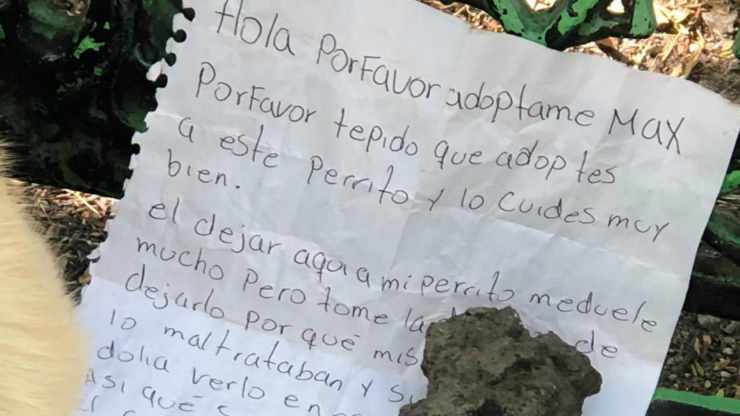 Hola PorFavor adoptame Max
PorFavor tepido que adoptes
a este Perrito y lo cuides muy
bien.
el dejar aqui a mi perrito meduele
mucho Pero tome la de
dejarlo Por qué mis
lo maltrataban y
dolia verlo en
Así qué